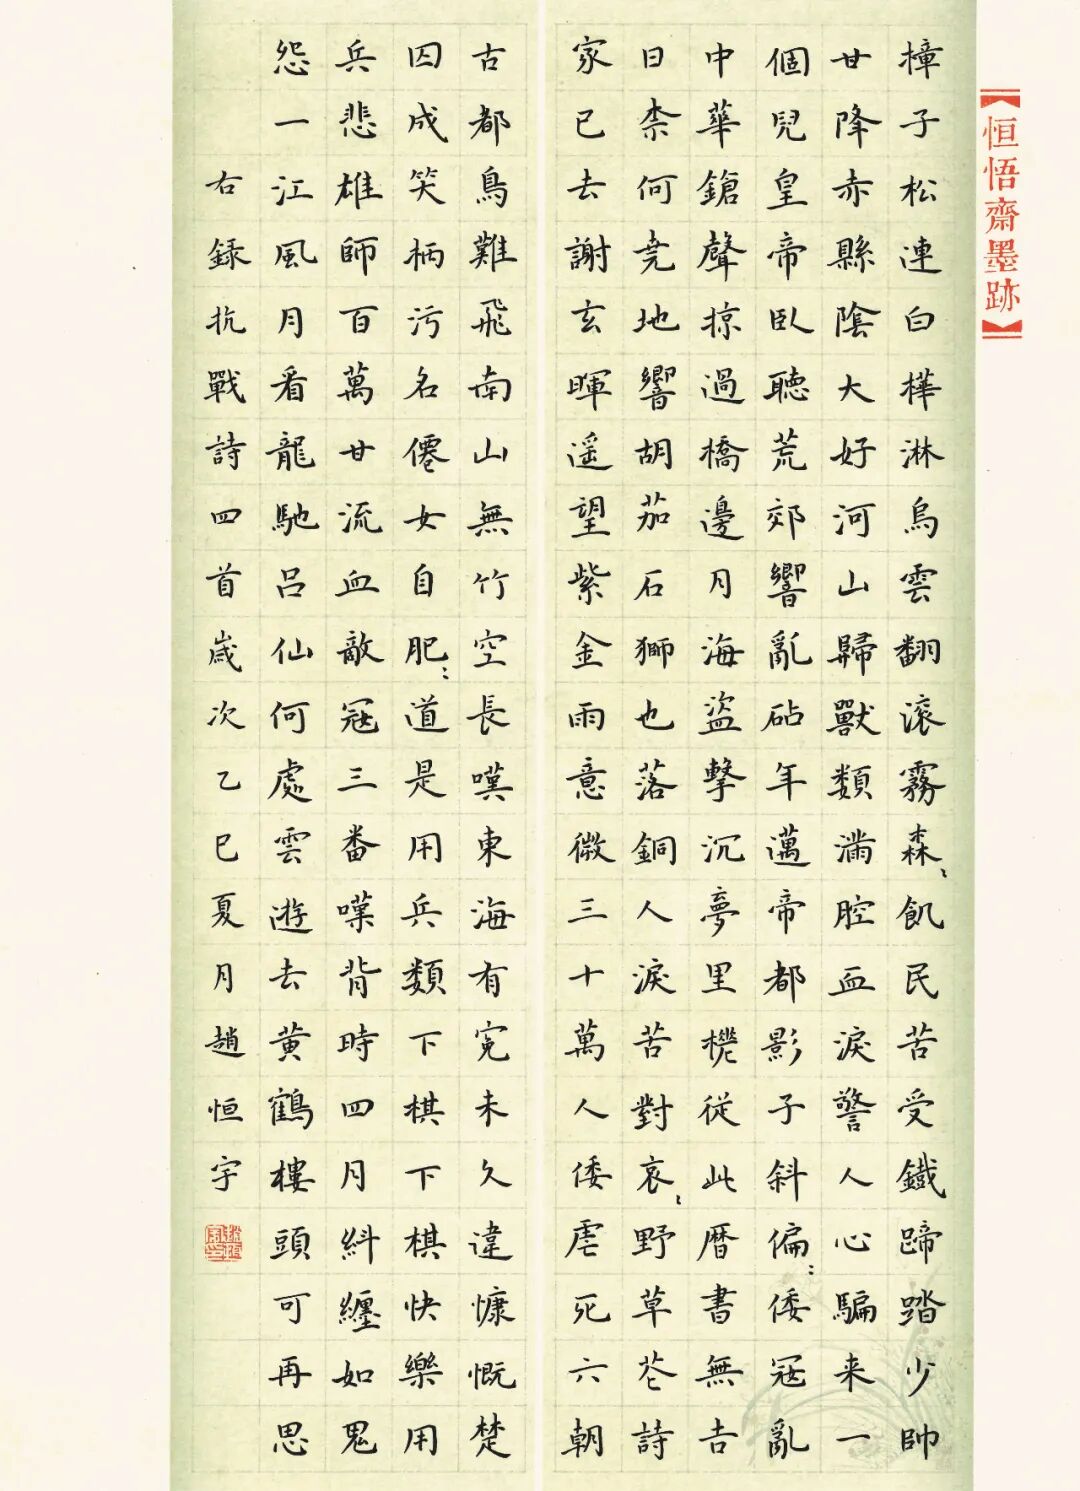 【恒悟齋墨跡】
樟子松連白樺淋烏雲翻滾霧森飢民苦受鐵蹄踏少帥
廿降赤縣陰大好河山歸獸類滿腔血淚警人心騙来一
個兒皇帝臥聽荒郊響亂砧年邁帝都影子斜偏倭冦亂
中華鎗聲掠過橋邊月海盜擊沉夢里從此曆書無吉
日柰何堯地響胡茄石獅也落銅人淚苦對哀野草花詩
家已去謝玄暉遥望紫金雨意微三十萬人倭虐死六朝
古都鳥難飛南山無竹空長嘆東海有冤未久違慷慨楚
囚成笑柄污名僊女自肥道是用兵類下棋下棋快樂用
兵悲雄師百萬廿流血敵冦三番嘆背時四月糾纏如鬼
怨一江風月看龍馳呂仙何處雲遊去黄鶴樓頭可再思
右録抗戰詩四首歲次乙巳夏月趙恒宇